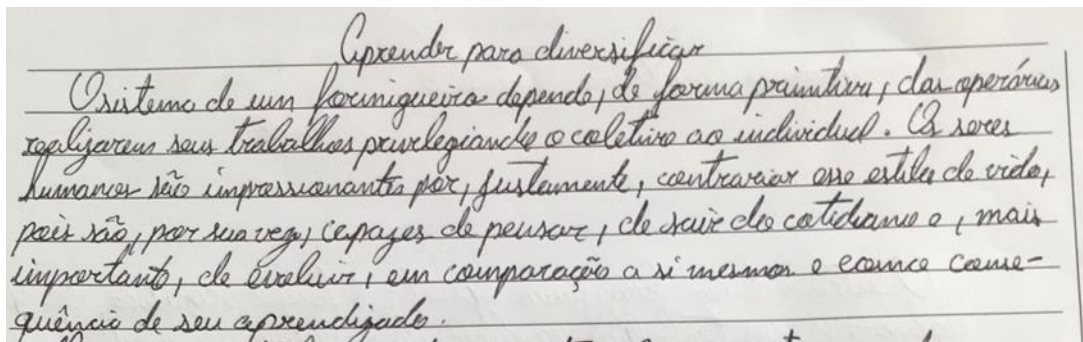 Aprender para diversificar
O sistema de um formigueiro depende, de forma primitiva, das operárias
realizarem seus trabalhos privilegiando o coletivo ao individual. Os seres
humanos são impressionantes por, justamente, contrariar esse estilo de vida,
pois são, por sua vez, capazes de pensar, de sair do cotidiano e, mais
importante, de evoluir, em comparação a si mesmos e como conse-
quência de seu aprendizado.